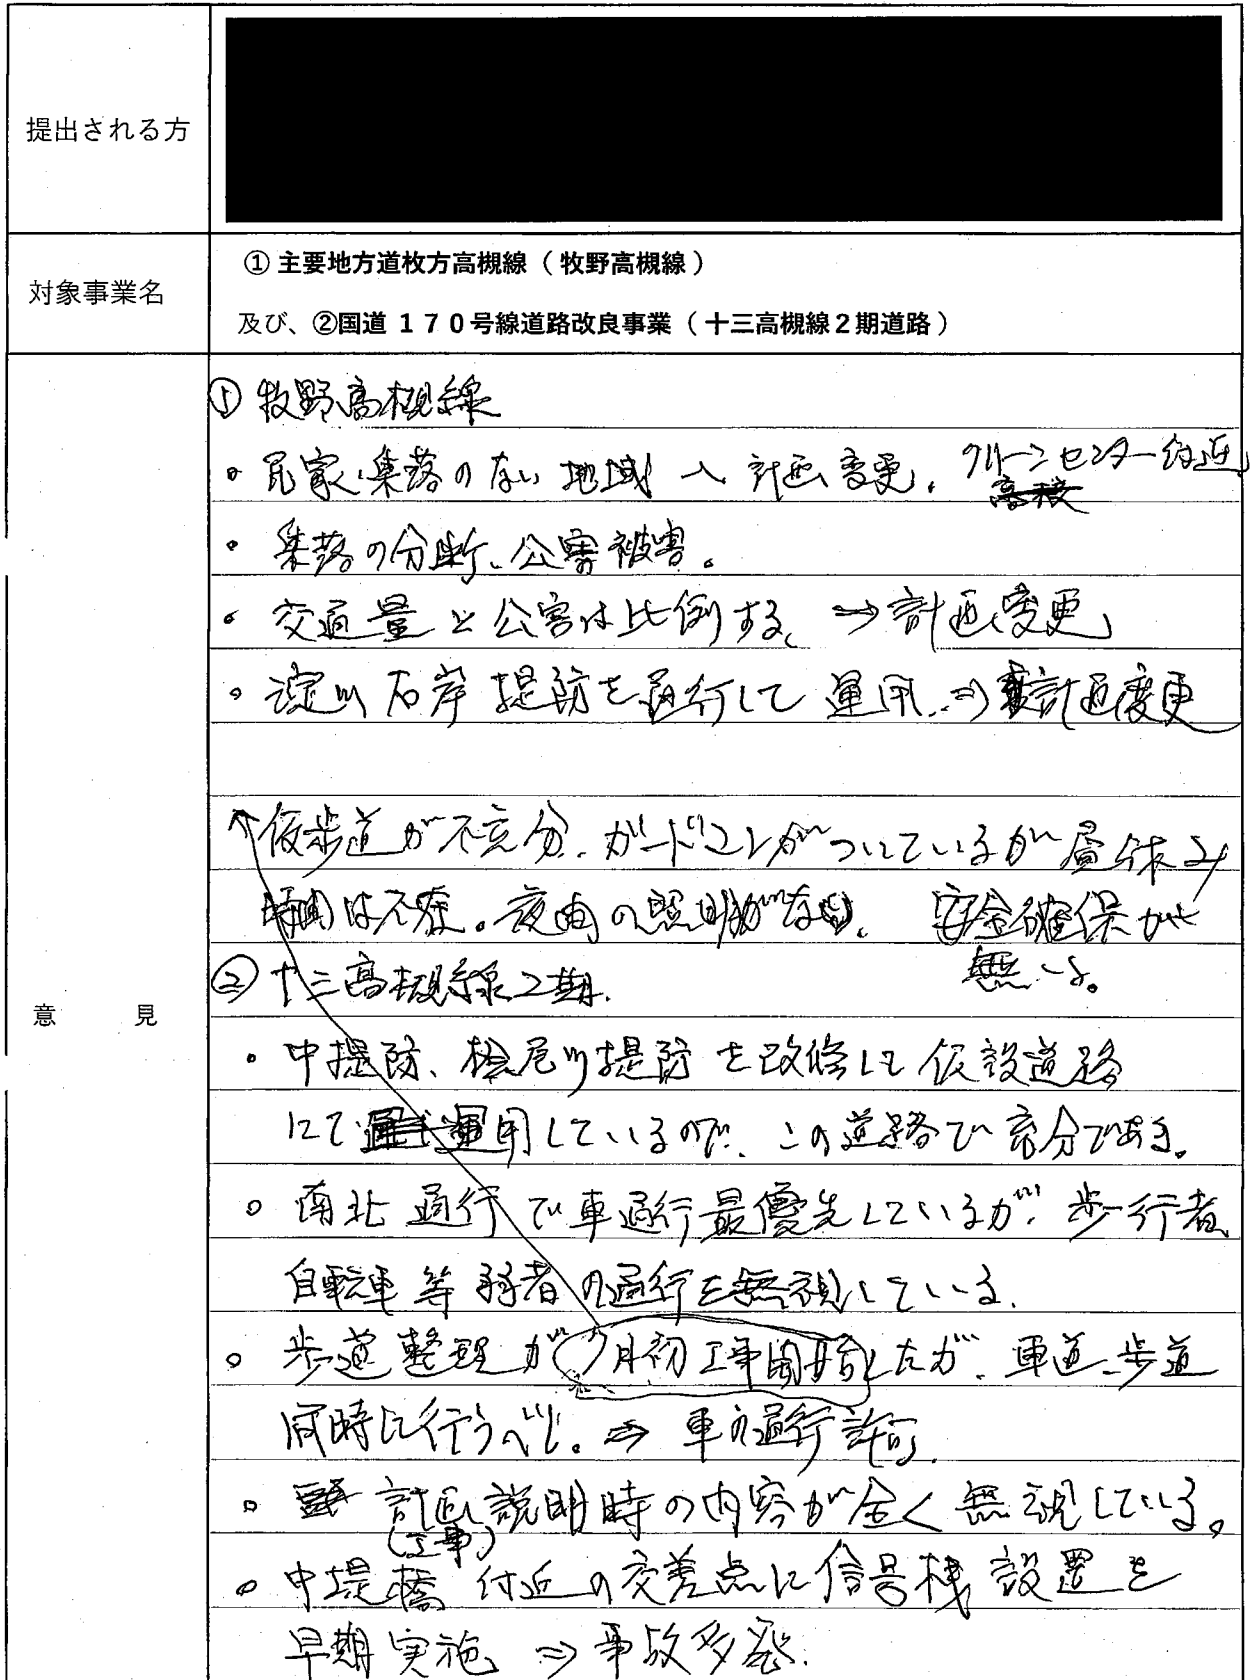 提出される方
対象事業名
① 主要地方道枚方高槻線（牧野高槻線）
及び、②国道１７０号線道路改良事業（十三高槻線２期道路）
意　見
① 牧野高槻線
・民家、集落のない地域へ計画変更。クリーンセンター付近
・集落の分断、公害被害。
・交通量と公害は比例する、⇒計画変更
・淀川右岸堤防を通行して運用。⇒計画変更
仮歩道が不充分。ガードマンがついているが昼休み
時間は不在。夜間の照明がない。安全確保が
無い。
② 十三高槻線２期。
・中堤防、桧尾川堤防を改修して仮設道路
にて運用しているので、この道路で充分である。
・南北通行で車通行最優先しているが、歩行者
自転車等弱者の通行を無視している。
・歩道整理が7月初工事開始したが、車道、歩道
同時に行うべし。⇒車の通行許可。
・計画説明時の内容が全く無視している。
(工事)
・中堤橋付近の交差点に信号機設置を
早期実施 ⇒ 事故多発。